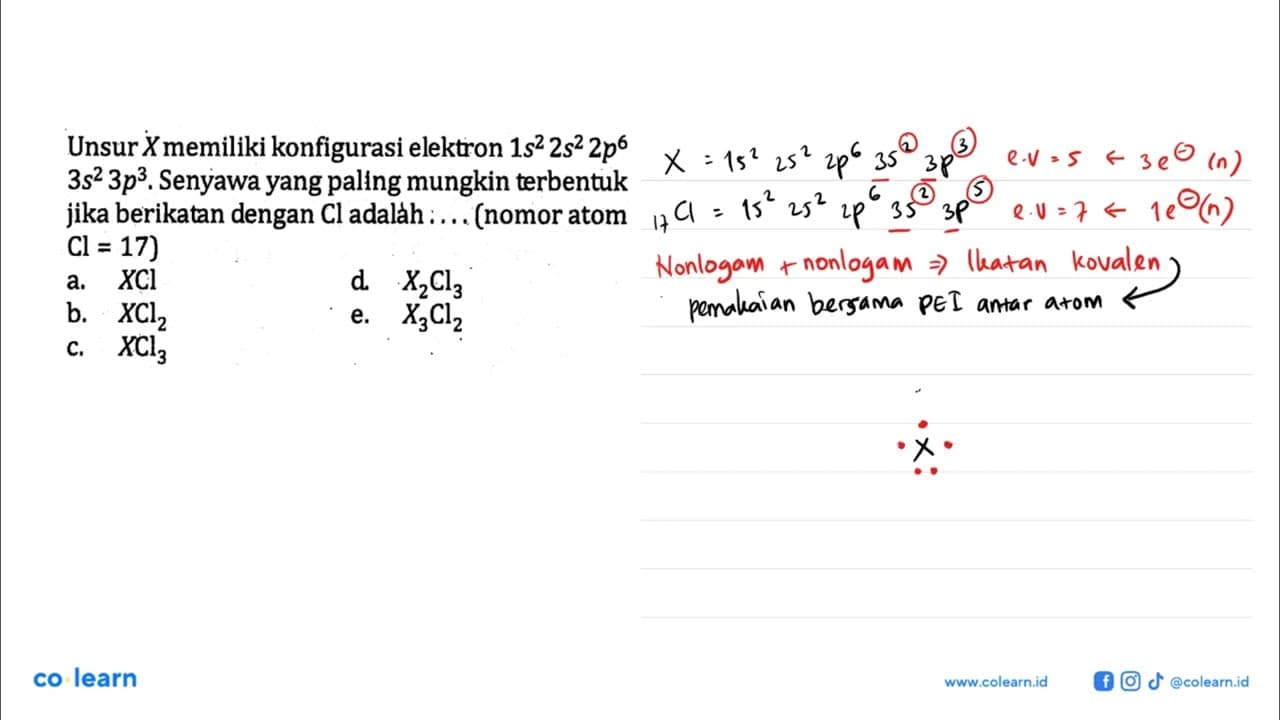 Unsur X memiliki konfigurasi elektron 1s² 2s² 2p⁶
3s² 3p³. Senyawa yang paling mungkin terbentuk
jika berikatan dengan Cl adalah .... (nomor atom
Cl = 17)
a. XCl
b. XCl₂
c. XCl₃
d. X₂Cl₃
e. X₃Cl₂
X = 1s² 2s² 2p⁶ 3s² 3p³ e.v = 5 ← 3e⊖ (n)
₁₇Cl = 1s² 2s² 2p⁶ 3s² 3p⁵ e.v = 7 ← 1e⊖(n)
Nonlogam + nonlogam ⇒ Ikatan kovalen
pemakaian bersama PEI antar atom ←
X
co learn
www.colearn.id
@colearn.id